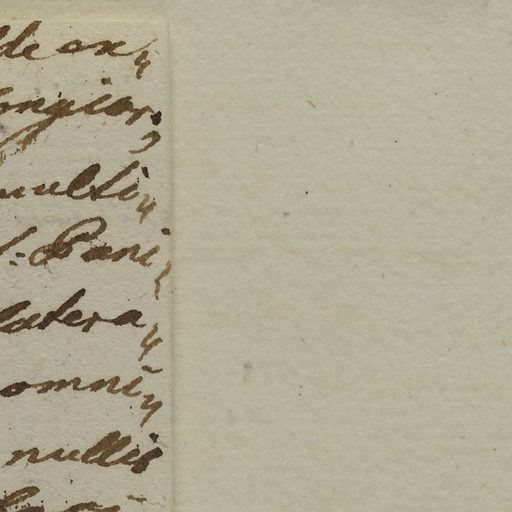 de ex=
ongior,
multi=
: Pani=
latera=
omni=
nullis